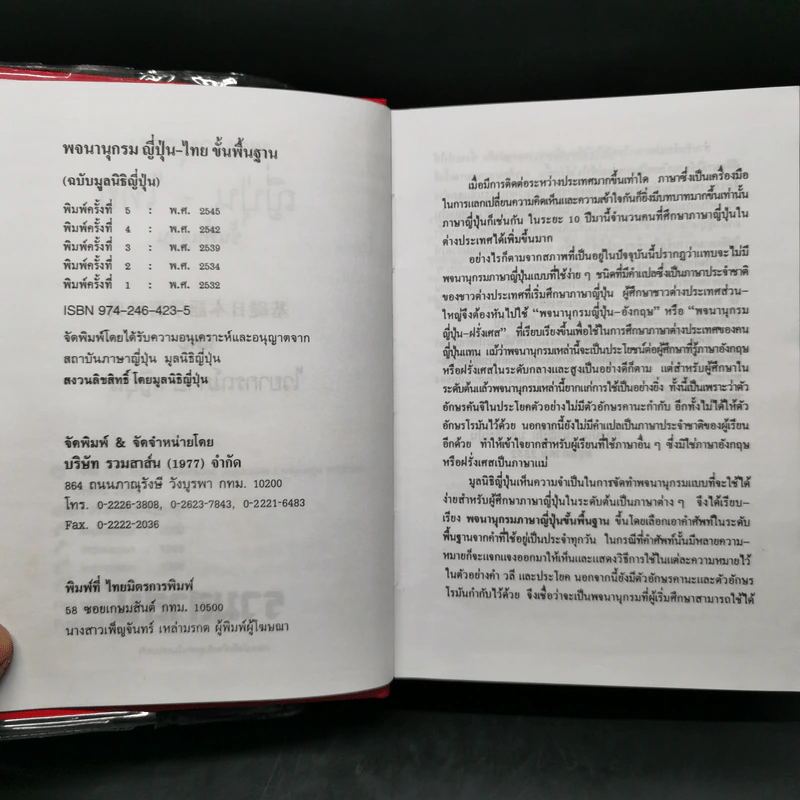 พจนานุกรม ญี่ปุ่น-ไทย ขั้นพื้นฐาน
(ฉบับมูลนิธิญี่ปุ่น)
พิมพ์ครั้งที่ 5 : พ.ศ. 2545
พิมพ์ครั้งที่ 4 : พ.ศ. 2542
พิมพ์ครั้งที่ 3 : พ.ศ. 2539
พิมพ์ครั้งที่ 2 : พ.ศ. 2534
พิมพ์ครั้งที่ 1 : พ.ศ. 2532
ISBN 974-246-423-5
จัดพิมพ์โดยได้รับความอนุเคราะห์และอนุญาตจาก
สถาบันภาษาญี่ปุ่น มูลนิธิญี่ปุ่น
สงวนลิขสิทธิ์ โดยมูลนิธิญี่ปุ่น
จัดพิมพ์ & จัดจำหน่ายโดย
บริษัท รวมสาส์น (1977) จำกัด
864 ถนนภาณุรังษี วังบูรพา กทม. 10200
โทร. 0-2226-3808, 0-2623-7843, 0-2221-6483
Fax. 0-2222-2036
พิมพ์ที่ ไทยมิตรการพิมพ์
58 ซอยเกษมสันต์ กทม. 10500
นางสาวเพ็ญจันทร์ เหล่ามรกต ผู้พิมพ์ผู้โฆษณา
เมื่อมีการติดต่อระหว่างประเทศมากขึ้นเท่าใด ภาษาซึ่งเป็นเครื่องมือ
ในการแลกเปลี่ยนความคิดเห็นและความเข้าใจกันก็ยิ่งมีบทบาทมากขึ้นเท่านั้น
ภาษาญี่ปุ่นก็เช่นกัน ในระยะ 10 ปีมานี้จำนวนคนที่ศึกษาภาษาญี่ปุ่นใน
ต่างประเทศได้เพิ่มขึ้นมาก
อย่างไรก็ตามจากสภาพที่เป็นอยู่ในปัจจุบันนี้ปรากฏว่าแทบจะไม่มี
พจนานุกรมภาษาญี่ปุ่นแบบที่ใช้ง่าย ๆ ชนิดที่มีคำแปลซึ่งเป็นภาษาประจำชาติ
ของชาวต่างประเทศที่เริ่มศึกษาภาษาญี่ปุ่น ผู้ศึกษาชาวต่างประเทศส่วน-
ใหญ่จึงต้องหันไปใช้ “พจนานุกรมญี่ปุ่น-อังกฤษ” หรือ “พจนานุกรม
ญี่ปุ่น-ฝรั่งเศส” ที่เรียบเรียงขึ้นเพื่อใช้ในการศึกษาภาษาต่างประเทศของคน
ญี่ปุ่นแทน แม้ว่าพจนานุกรมเหล่านี้จะเป็นประโยชน์ต่อผู้ศึกษาที่รู้ภาษาอังกฤษ
หรือฝรั่งเศสในระดับกลางและสูงเป็นอย่างดีก็ตาม แต่สำหรับผู้ศึกษาใน
ระดับต้นแล้วพจนานุกรมเหล่านี้ยากแก่การใช้เป็นอย่างยิ่ง ทั้งนี้เป็นเพราะว่าตัว
อักษรคันจิในประโยคตัวอย่างไม่มีตัวอักษรคานะกำกับ อีกทั้งไม่ได้ให้ตัว
อักษรโรมันไว้ด้วย นอกจากนี้ยังไม่มีคำแปลเป็นภาษาประจำชาติของผู้เรียน
อีกด้วย ทำให้เข้าใจยากสำหรับผู้เรียนที่ใช้ภาษาอื่น ๆ ซึ่งมิใช่ภาษาอังกฤษ
หรือฝรั่งเศสเป็นภาษาแม่
มูลนิธิญี่ปุ่นเห็นความจำเป็นในการจัดทำพจนานุกรมแบบที่จะใช้ได้
ง่ายสำหรับผู้ศึกษาภาษาญี่ปุ่นในระดับต้นเป็นภาษาต่าง ๆ จึงได้เรียบ-
เรียง พจนานุกรมภาษาญี่ปุ่นขั้นพื้นฐาน ขึ้นโดยเลือกเอาคำศัพท์ในระดับ
พื้นฐานจากคำที่ใช้อยู่เป็นประจำทุกวัน ในกรณีที่คำศัพท์นั้นมีหลายความ-
หมายก็จะแจกแจงออกมาให้เห็นและแสดงวิธีการใช้ในแต่ละความหมายไว้
ในตัวอย่างคำ วลี และประโยค นอกจากนี้ยังมีตัวอักษรคานะและตัวอักษร
โรมันกำกับไว้ด้วย จึงเชื่อว่าจะเป็นพจนานุกรมที่ผู้เริ่มศึกษาสามารถใช้ได้